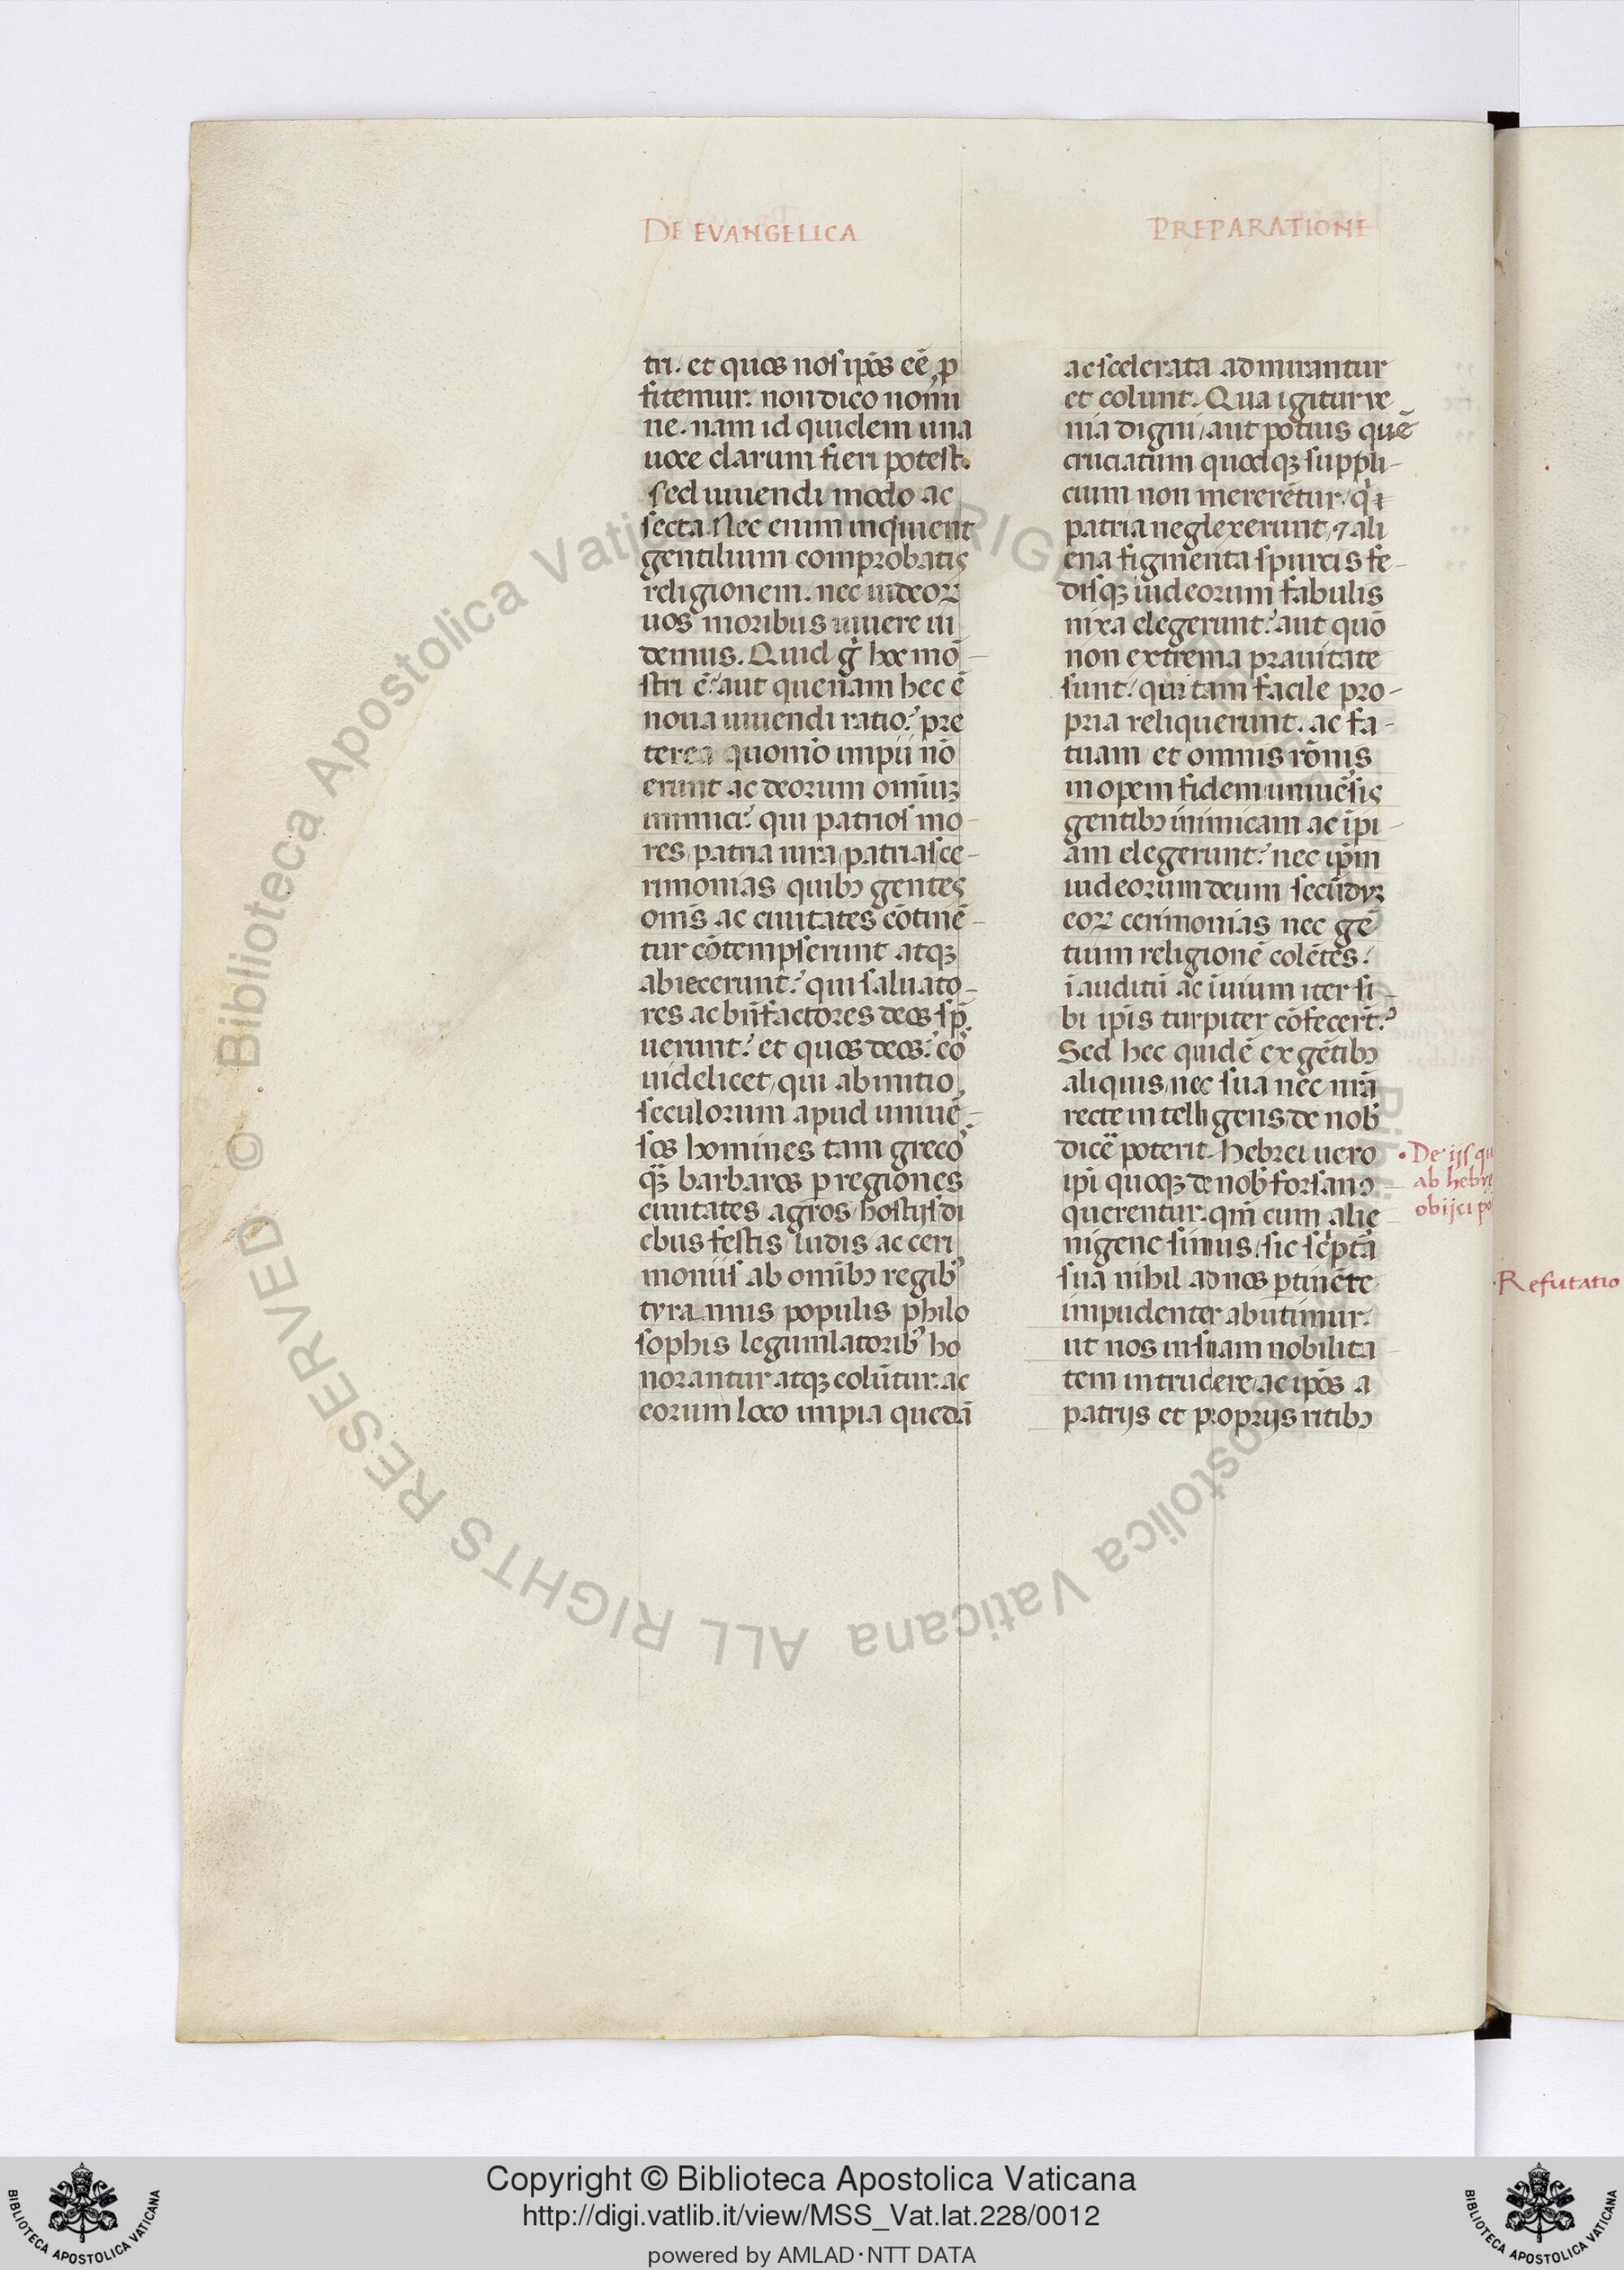 DE EVANGELICA
tri. et quos nos ip̄os eē p̲
fitemur. non dico nomi
ne. nam id quidem una
uoce clarum fieri potest.
sed uiuendi modo ac
secta. Nec enim inquient
gentilium comprobatis
religionem. nec iudeoꝝ
uos moribus uiuere ui
demus. Quid g̊ hoc mō
stri ē? aut quenam hec ē
noua uiuendi ratio? pre
terea quomō impii nō
erunt ac deorum omiuꝫ
inimici? qui patrios mo-
res, patria iura, patrias ce-
rimonias, quibꝰ gentes
om̄s ac ciuitates cōtinē-
tur cōtempserunt atqꝫ
abiecerunt? qui saluato-
res ac bn̄factores deos sp̲
uerunt? et quos deos? eo
uidelicet, qui ab initio
seculorum apud uniuē-
sos homines tam greco
qꝫ barbaros p̲ regiones
ciuitates agros, hostijs di
ebus festis ludis ac ceri
moniis ab omībꝰ regibꝰ
tyrannis populis philo
sophis legumlatoribꝰ ho
norantur atqꝫ colūtur. ac
eorum loco impia quedā
PREPARATIONE
ac scelerata admirantur
et colunt. Qua igitur ve
nia digni, aut potius quē
cruciatum quodqꝫ suppli-
cium non mererētur, qi
patria neglexerunt, ⁊ ali
ena figmenta spurcis fe-
disqꝫ iudeorum fabulis
nixa elegerunt? aut quō
non extrema prauitate
sunt? qui tam facile pro-
pria reliquerunt. ac fa-
tuam et omnis rōnis
inopem fidem uniuēsis
gentibꝰ inimicam ac īpi-
am elegerunt? nec ip̄m
iudeorum deum secūduꝫ
eoꝝ cerimonias, nec gē
tium religionē colētes.
īauditū ac īuium iter si-
bi ip̄is turpiter cōfecerūt?
Sed hec quidē ex gētibꝰ
aliquis, nec sua nec nr̄a
recte intelligens, de nobꝰ
dicē poterit. Hebrei uero
ip̄i quoqꝫ de nobꝰ forsan
querentur. qm̄ cum alie
nigene simus, sic scᵢptā
suā nihil ad nos p̲tinēte
impudenter abutimur.
ut nos in suam nobilita-
tem intrudere, ac ip̄os a
patrijs et proprijs ritibꝰ
• De ijs qu
ab hebre
obijci po
• Refutatio
© Biblioteca Apostolica Vaticana ALL RIGHTS RESERVED
Copyright © Biblioteca Apostolica Vaticana
http://digi.vatlib.it/view/MSS_Vat.lat.228/0012
powered by AMLAD·NTT DATA
BIBLIOTECA APOSTOLICA VATICANA
BIBLIOTECA APOSTOLICA VATICANA